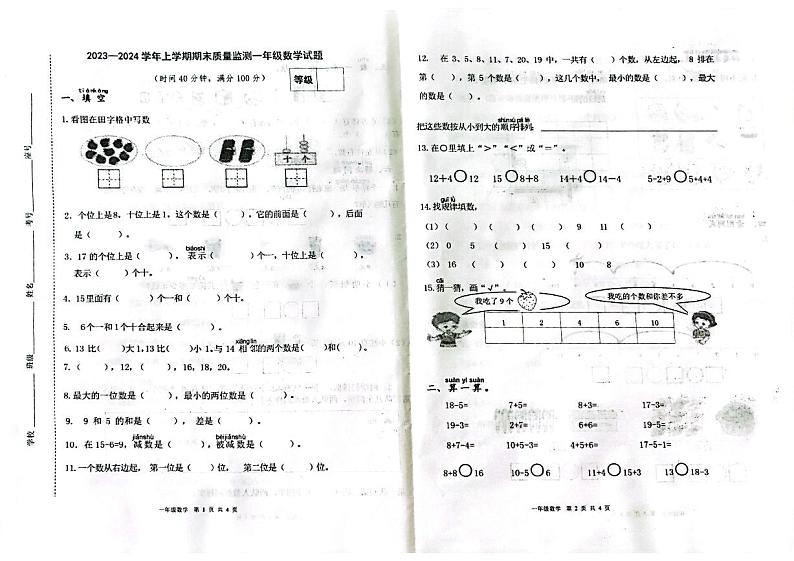 2023—2024 学年上学期期末质量监测一年级数学试题
（时间 40 分钟，满分 100 分）
等级
学校 班级 姓名 考号 座号
tián kòng
一、填 空
1.看图在田字格中写数
十 个
2. 个位上是8，十位上是1，这个数是（ ），它的前面是（ ），后面
是（ ）。
biǎoshì
3. 17 的个位上是（ ），表示（ ）个一，十位上是（ ），
表示（ ）个十。
4. 15里面有（ ）个一和（ ）个十。
5. 6个一和1个十合起来是（ ）。
xiānglín
6. 13 比（ ）大1,13 比（ ）小 1。与 14 相邻的两个数是（ ）和（ ）。
7.（ ），12，（ ），16，18，20。
8.最大的一位数是（ ），最小的两位数是（ ）。
9. 9 和 5 的和是（ ），差是（ ）。
jiǎnshù bèijiǎnshù
10. 在 15-6=9，减数是（ ），被减数是（ ）。
11.一个数从右边起，第一位是（ ）位，第二位是（ ）位。
一年级数学 第 1 页 共 4 页
12. 在 3、5、8、11、7、20、19 中，一共有（ ）个数，从左边起，8 排在
第（ ），第 5 个数是（ ），这几个数中，最小的数是（ ），最大
的数是（ ）。
shùnxù pái liè
把这些数按从小到大的顺序排列:
13. 在○里填上“＞”“＜”或“＝”。
12+4○12 15○8+8 14+4○14-4 5-2+9○5+4+4
guī lǜ
14.找规律填数，
(1)（ ）（ ）（ ）（ ） 9 11 （ ）
(2) 0 5 （ ） 15 （ ）
(3) 16 （ ）（ ） 10 8
cāi
15.猜一猜，画“√”。
我吃了9个
我吃的个数和你差不多
1 2 4 6 10
suàn yi suàn
二、算一算。
18-5= 7+5= 8+3= 17-3=
19-3= 2+7= 6+6= 19-5=
8+7-4= 10+5-3= 4+5+6= 17-5-1=
8+8○16 10-5○6 11+4○15+3 13○18-3
一年级数学 第 2 页 共 4 页